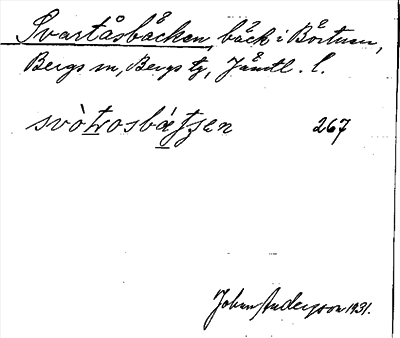 Svartåsbäcken, bäck i Börtnen,
Bergs sn, Bergs tg, Jämtl. l.
svòtrosbætʃen 267
Johan Andersson 1931.